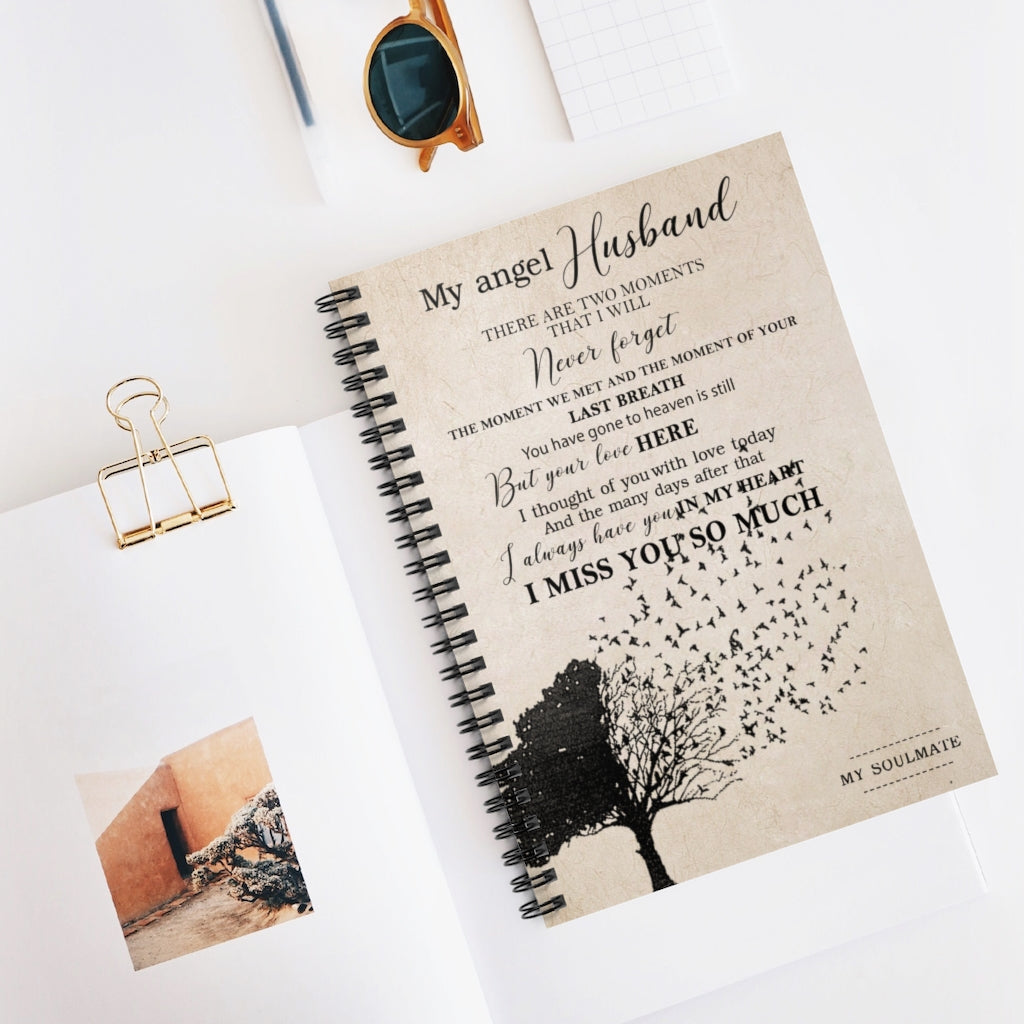 My angel Husband
THERE ARE TWO MOMENTS
THAT I WILL
Never forget
THE MOMENT WE MET AND THE MOMENT OF YOUR
LAST BREATH
You have gone to heaven is still
But your love HERE
I thought of you with love today
And the many days after that
I always have you IN MY HEART
I MISS YOU SO MUCH
MY SOULMATE